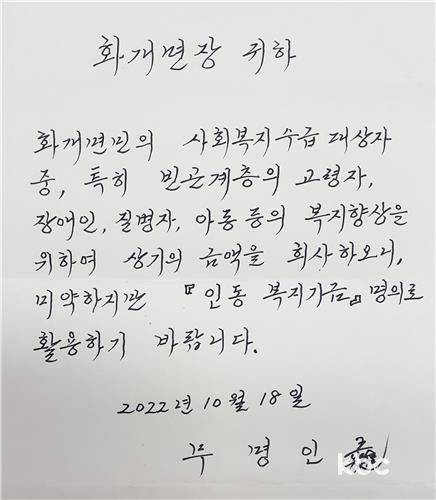 화개면장 귀하
화개면민의 사회복지수급 대상자
중, 특히 빈곤계층의 고령자,
장애인, 질병자, 아동 등의 복지향상을
위하여 상기의 금액을 희사하오니,
미약하지만 『인동 복지기금』 명의로
활용하기 바랍니다.
2022년 10월 18일
무 명 인
kbc